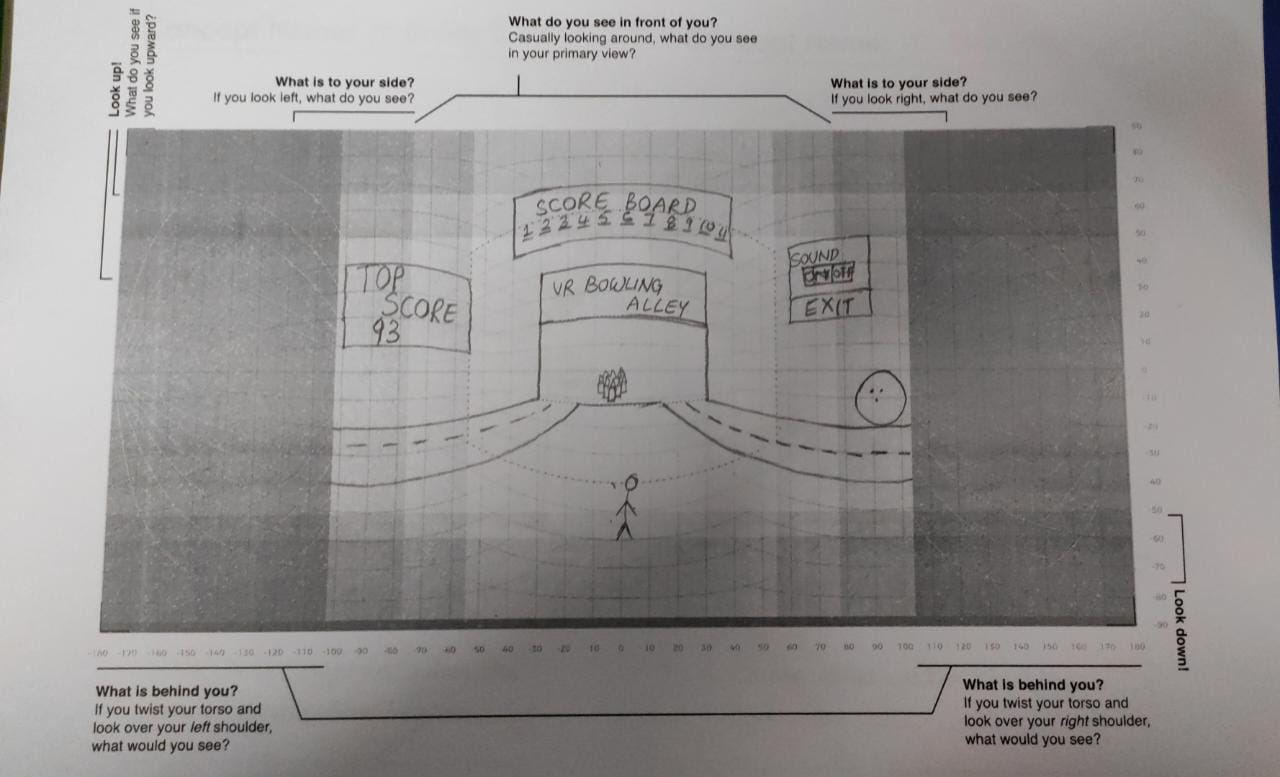 Look up!
What do you see if
you look upward?
What is to your side?
If you look left, what do you see?
What do you see in front of you?
Casually looking around, what do you see
in your primary view?
What is to your side?
If you look right, what do you see?
SCORE BOARD
1 2 3 4 5 6 7 8 9 10 11
TOP
SCORE
93
VR BOWLING
ALLEY
SOUND
ON OFF
EXIT
90
80
70
60
50
40
30
20
10
0
-10
-20
-30
-40
-50
-60
-70
-80
-90
Look down!
-180 -170 -160 -150 -140 -130 -120 -110 -100 -90 -80 -70 -60 -50 -40 -30 -20 10 0 10 20 30 40 50 60 70 80 90 100 110 120 130 140 150 160 170 180
What is behind you?
If you twist your torso and
look over your left shoulder,
what would you see?
What is behind you?
If you twist your torso and
look over your right shoulder,
what would you see?